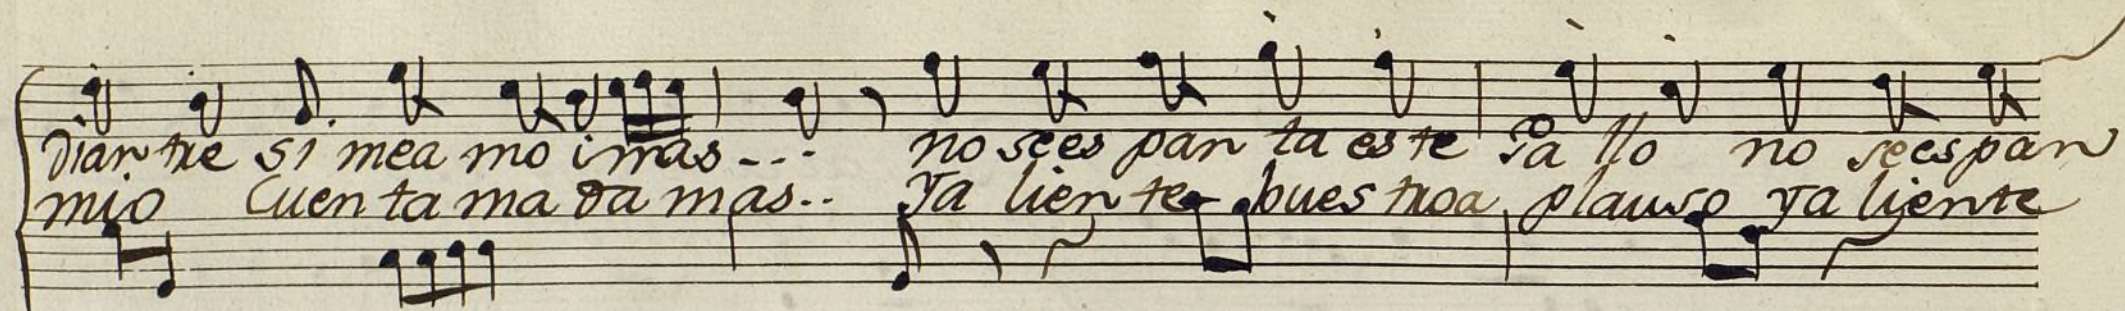 diantre si mea mo i mas - - - no sees pan ta es te Pa llo no sees pan
mio Cuen ta ma da mas.. Ya lien te buestroa plauso ya liente